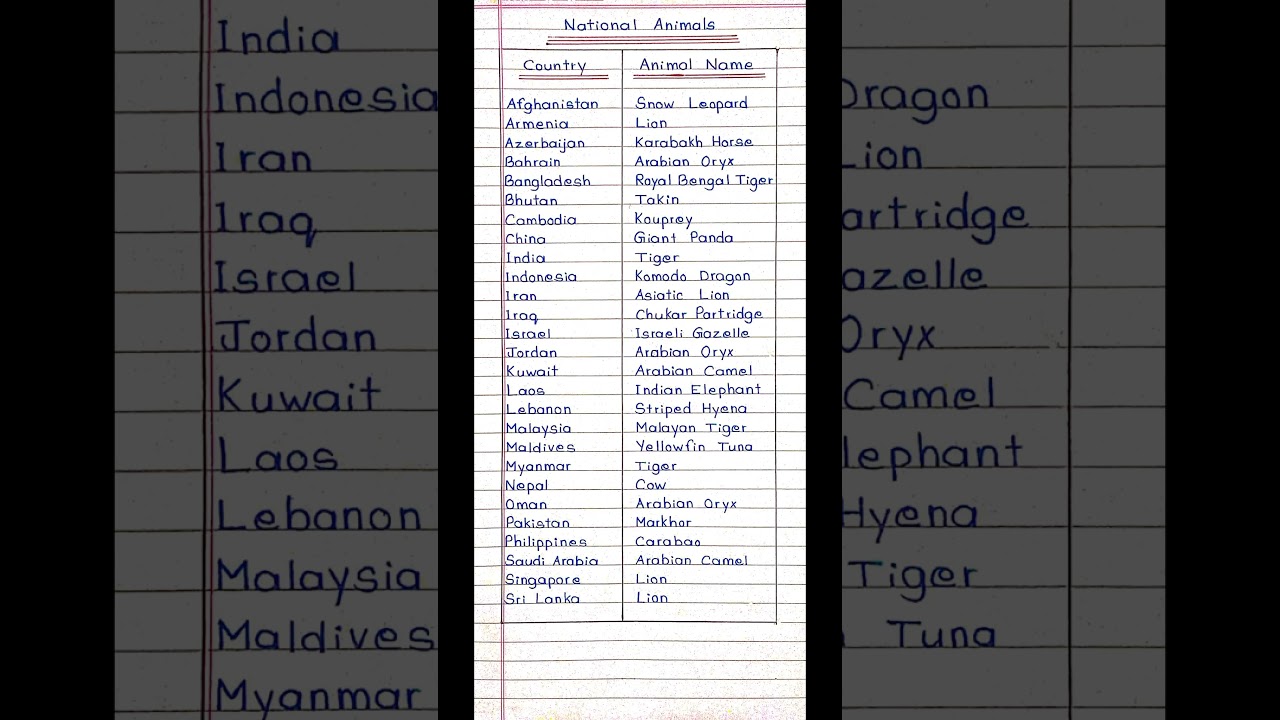 National Animals
Country Animal Name
Afghanistan Snow Leopard
Armenia Lion
Azerbaijan Karabakh Horse
Bahrain Arabian Oryx
Bangladesh Royal Bengal Tiger
Bhutan Takin
Cambodia Kouprey
China Giant Panda
India Tiger
Indonesia Komodo Dragon
Iran Asiatic Lion
Iraq Chukar Partridge
Israel Israeli Gazelle
Jordan Arabian Oryx
Kuwait Arabian Camel
Laos Indian Elephant
Lebanon Striped Hyena
Malaysia Malayan Tiger
Maldives Yellowfin Tuna
Myanmar Tiger
Nepal Cow
Oman Arabian Oryx
Pakistan Markhor
Philippines Carabao
Saudi Arabia Arabian Camel
Singapore Lion
Sri Lanka Lion
India
Indonesia
Iran
Iraq
Israel
Jordan
Kuwait
Laos
Lebanon
Malaysia
Maldives
Myanmar
Dragon
Lion
artridge
azelle
Oryx
Camel
lephant
Hyena
Tiger
Tuna